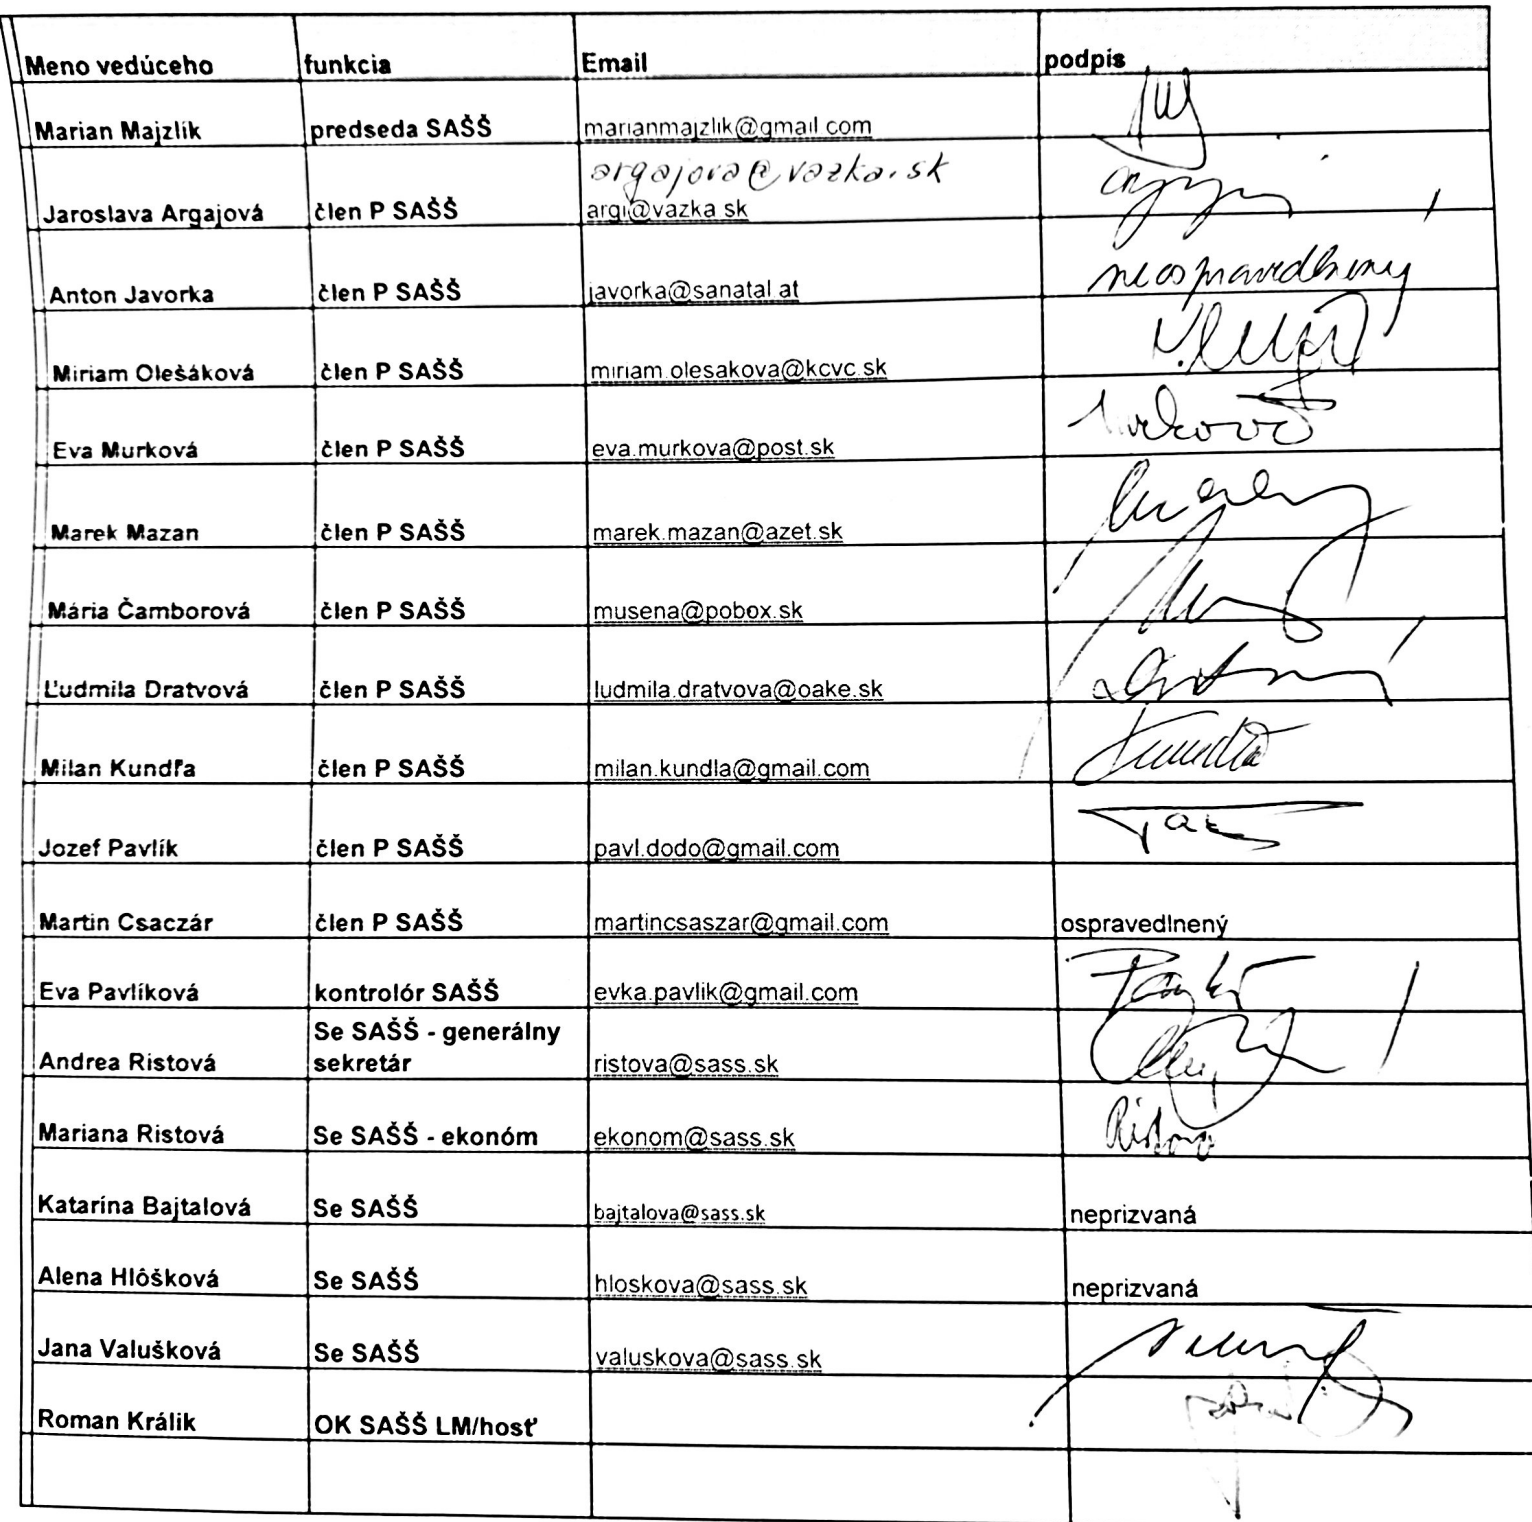 Meno vedúceho funkcia Email podpis
Marian Majzlík predseda SAŠŠ marianmajzlik@gmail.com
argajova@vazka.sk
Jaroslava Argajová člen P SAŠŠ argi@vazka.sk
Anton Javorka člen P SAŠŠ javorka@sanatal.at neospravedlnený
Miriam Olešáková člen P SAŠŠ miriam.olesakova@kcvc.sk
Eva Murková člen P SAŠŠ eva.murkova@post.sk
Marek Mazan člen P SAŠŠ marek.mazan@azet.sk
Mária Čamborová člen P SAŠŠ musena@pobox.sk
Ľudmila Dratvová člen P SAŠŠ ludmila.dratvova@oake.sk
Milan Kundľa člen P SAŠŠ milan.kundla@gmail.com Kundľa
Jozef Pavlík člen P SAŠŠ pavl.dodo@gmail.com
Martin Csaczár člen P SAŠŠ martincsaszar@gmail.com ospravedlnený
Eva Pavlíková kontrolór SAŠŠ evka.pavlik@gmail.com
Se SAŠŠ - generálny
Andrea Ristová sekretár ristova@sass.sk
Mariana Ristová Se SAŠŠ - ekonóm ekonom@sass.sk
Katarína Bajtalová Se SAŠŠ bajtalova@sass.sk neprizvaná
Alena Hlôšková Se SAŠŠ hloskova@sass.sk neprizvaná
Jana Valušková Se SAŠŠ valuskova@sass.sk
Roman Králik OK SAŠŠ LM/hosť